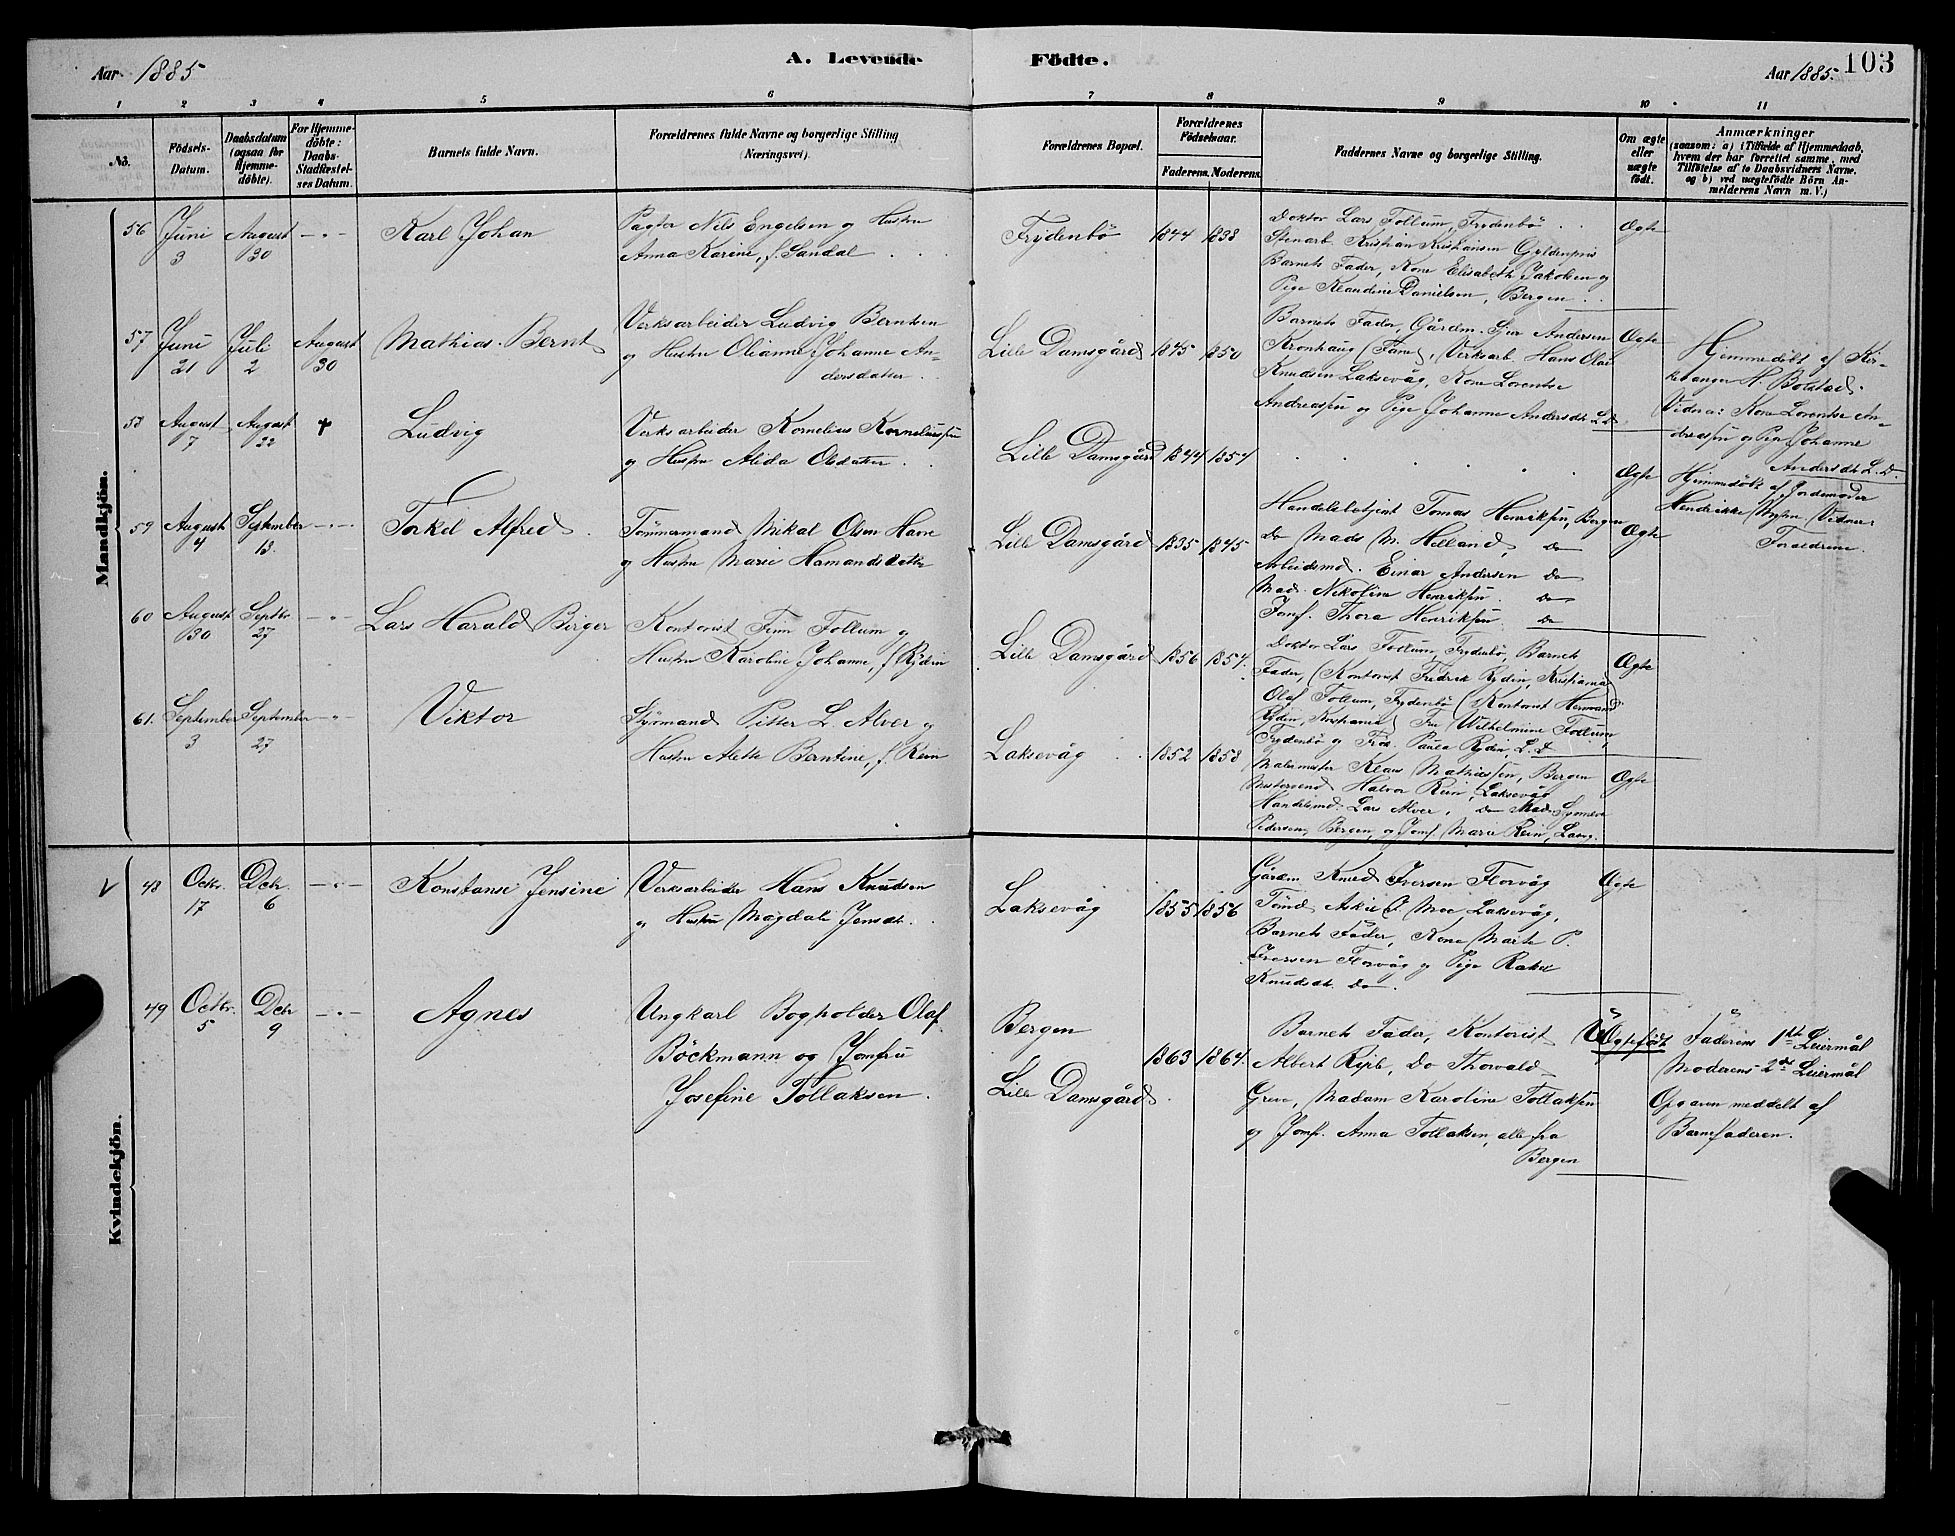 Aar 1885
A. Levende
Födte.
Aar 1885.
103
1 2 3 4 5 6 7 8 9 10 11
No.
Födsels-Datum.
Daabsdatum (ogsaa for Hjemme-döbte).
For Hjemme-döbte: Daabs-Stadfæstel-ses Datum.
Barnets fulde Navn.
Forældrenes fulde Navne og borgerlige Stilling (Næringsvei).
Forældrenes Bopæl.
Forældrenes Födselsaar.
Faderens. Moderens.
Faddernes Navne og borgerlige Stilling.
Om ægte eller uægte födt.
Anmærkninger
(saasom: a) i Tilfælde af Hjemmedaab,
hvem der har forrettet samme, med
Tilföielse af to Daabsvidners Navne.
og b) ved uægtefödte Börn An-
melderens Navn m. V.)
Mandkjön.
56 Juni 3
August 30
Karl Johan
Pagter Nils Engelsen og Hustru
Anna Karine, f. Sandal
Frydenbö
1844 1838
Doktor Lars Follum, Frydenbö
Stenarb. Kristian Kristiansen Gyldenpris
Barnets Fader, Kone Elisabeth Jakobsen og
Pige Klaudine Danielsen, Bergen
Ægte
57 Juni 21
Juli 2
August 30
Mathias Bernt
Verksarbeider Ludvig Berntsen
og Hustru Olianne Johanne An-
dersdatter
Lille Damsgård
1845 1850
Barnets Fader, Gårdm. Sjur Andersen
Kronhaug (Fane), Verksarb. Hans Olai
Knudsen Laksevåg, Kone Lorentse
Andreassen og Pige Johanne Andersdt. L. D.
Ægte
Hjemmedöbt af Kir-
kesanger H. Bolstad.
Vidner: Kone Lorentse An-
dreassen og Pige Johanne
Andersdt. L. D.
58 August 7
August 22
†
Ludvig
Verksarbeider Kornelius Korneliussen
og Hustru Alida Olsdatter
Lille Damsgård
1844 1854
Ægte
Hjemmedöbt af Jordemoder
Hendrikke Vidner:
Forældrene.
59 August 4
September 13.
Torkel Alfred
Tömmermand Mikal Olsen Havre
og Hustru Marie Hamandsdatter
Lille Damsgård
1835 1845
Handelsbetjent Tomas Henriksen, Bergen
Do Mads M. Helland, Do
Arbeidsmd. Einar Andersen Do
Mad. Nikoline Henriksen Do
Jomf. Thora Henriksen Do
Ægte
60 August 30
Septbr. 27
Lars Harald Birger
Kontorist Finn Follum og
Hustru Karoline Johanne, f. Rydin
Lille Damsgård
1856 1854.
Doktor Lars Follum, Frydenbö, Barnets
Fader, Kontorist Fredrik Ryden, Kristiania
Olaf Follum, Frydenbö, Kontorist Herman
Ryden, Kristiania, Fru Wilhelmine Follum,
Frydenbö og Frök. Paula Ryden, L. D.
Ægte
61. September 3
September 27
Viktor
Styrmand Pitter L. Alver og
Hustru Alette Berntine, f. Rein
Laksevåg
1852 1858
Malermester Klaus Mathiassen, Bergen
Halvor Rein, Laksevåg
Handelsmd. Lars Alver, Do Mad.
Pedersen, Bergen, og Jomf. Marie Rein, Laksv.
Ægte
Kvindekjön.
V
48 Octbr. 17
Decbr. 6
Konstanse Jensine
Verksarbeider Hans Knudsen
og Hustru Magdali Jensdt.
Laksevåg
1855 1856
Gårdm. Knud Iversen Florvåg
Tömd. Moe, Laksevåg,
Barnets Fader, Kone Marte P.
Iversen Florvåg og Pige Rakel
Knudsdt. Do.
Ægte
49 Octbr. 5
Decbr 9
Agnes
Ungkarl Bogholder Olaf
Böckmann og Jomfru
Josefine Tollaksen.
Bergen
Lille Damsgård
1863 1864.
Barnets Fader, Kontorist
Albert Do Thorvald
Greve, Madam Karoline Tollaksen
og Jomfr. Anna Tollaksen, alle fra
Bergen
Uægtefödt
Faderens 1ste Leiermål
Moderens 2det Leiermål
Opgaven meddelt af
Barnefaderen.